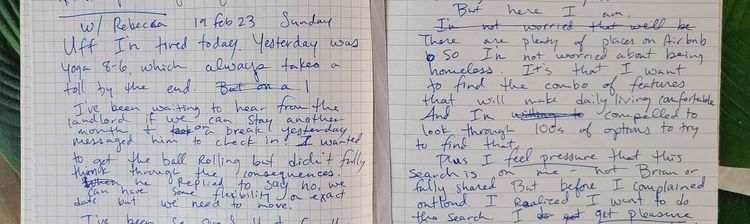 w/ Rebecca 19 feb 23 Sunday
Uff I'm tired today. Yesterday was
yoga 8-6, which always takes a
toll by the end. But on a l
I've been waiting to hear from the
landlord if we can stay another
month & on a break yesterday
messaged him to check in. I wanted
to get the ball rolling but didn't fully
think through the consequences.
When he replied to say no, we
can have some flexibility on exact
date but we need to move.
I've been so
But here I am.
I'm not worried that we'll be
There are plenty of places on Airbnb
so I'm not worried about being
homeless. It's that I want
to find the combo of features
that will make daily living comfortable
And I'm willing to compelled to
look through 100s of options to try
to find that.
Plus I feel pressure that this
search is on me - not Brian or
fully shared But before I complained
outloud I realized I want to do
the search. I get pleasure